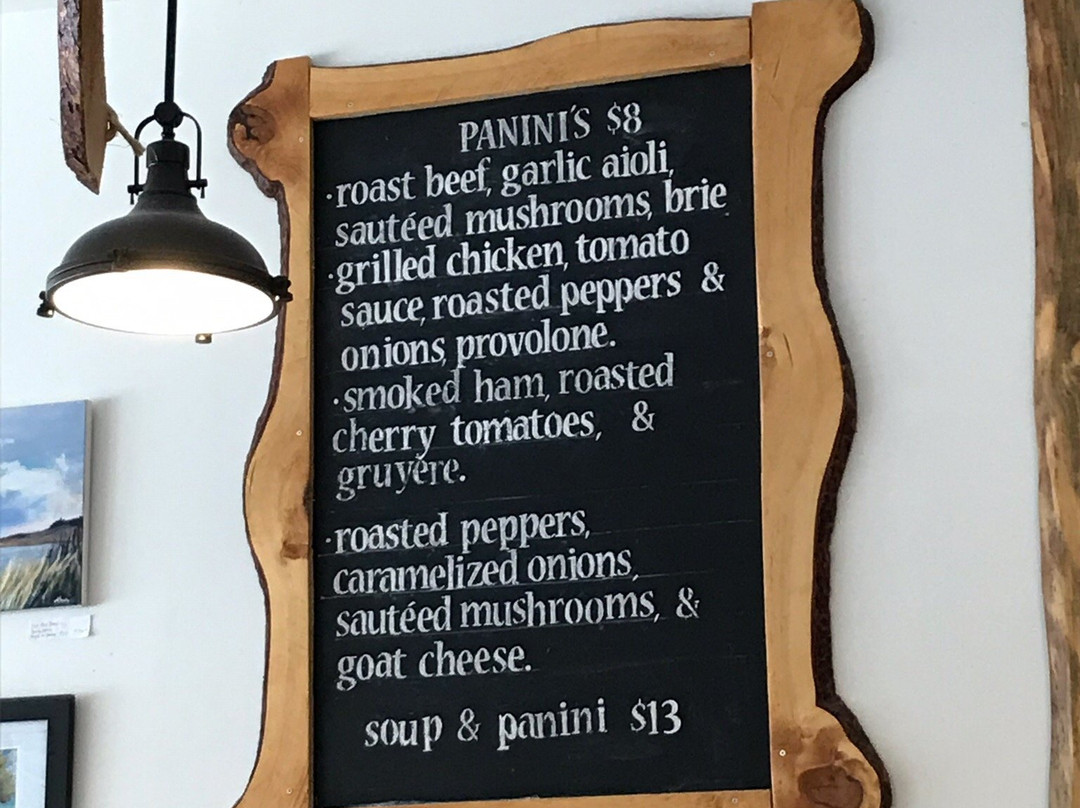 PANINI'S $8
·roast beef, garlic aioli,
sautéed mushrooms, brie
·grilled chicken, tomato
sauce, roasted peppers &
onions, provolone.
·smoked ham, roasted
cherry tomatoes, &
gruyère.
·roasted peppers,
caramelized onions,
sautéed mushrooms, &
goat cheese.
soup & panini $13